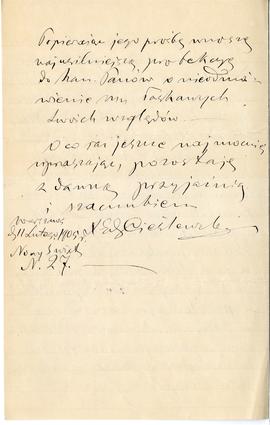 Popierając jego prośbę wnoszę
najusilniejszą
do Kan. Panów o nieodmó-
wienie mu łaskawych
Swoich względów.
O co raz jeszcze najmocniej
upraszając, pozostaję
z dawną przyjaźnią
i szacunkiem
Warszawa
d. 11 Lutego 1905 r.
Nowy Świat
N. 27.